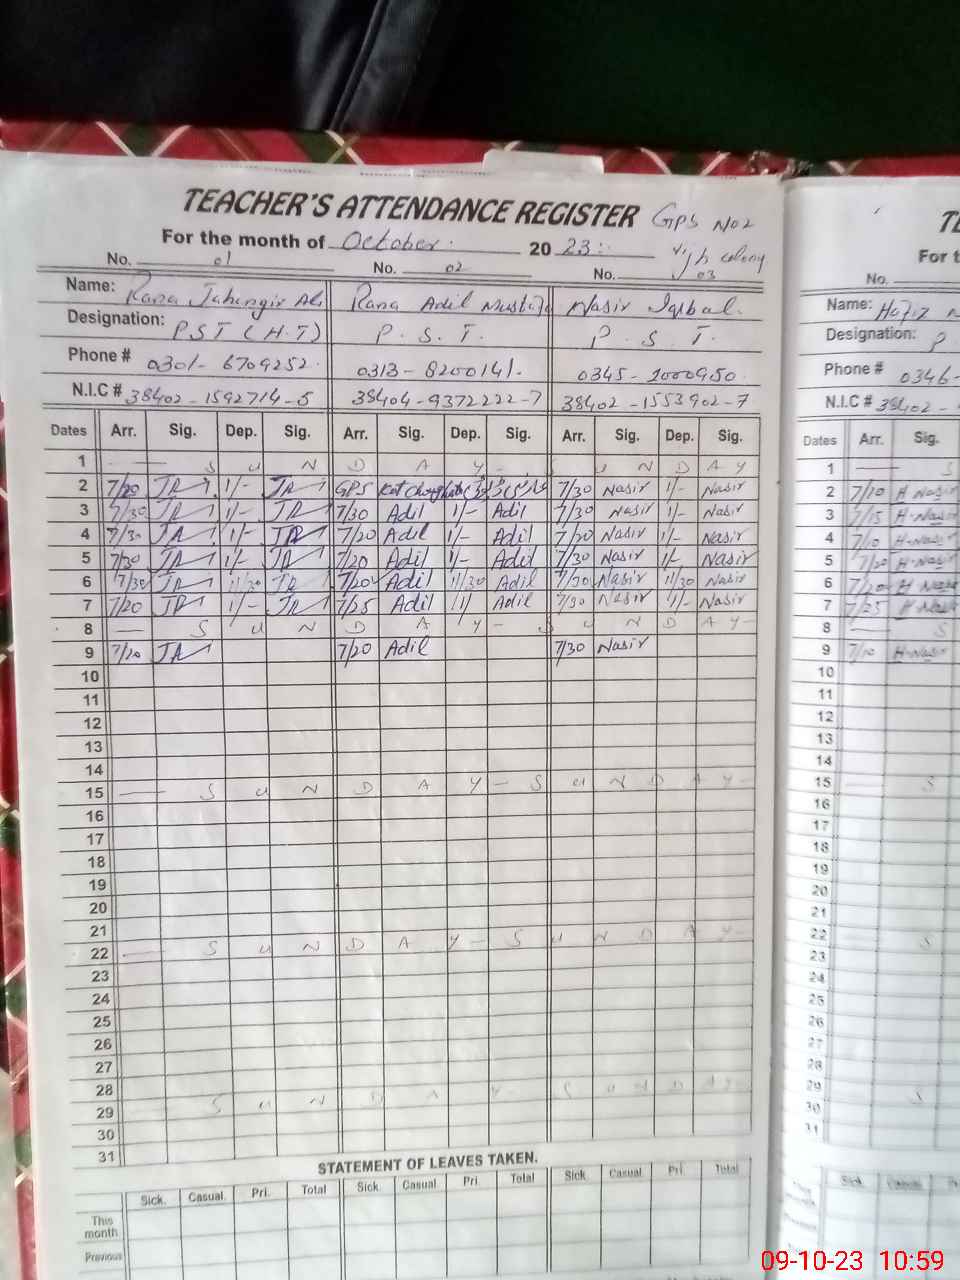 TEACHER'S ATTENDANCE REGISTER GPS No2
For the month of October 2023 colony
No. 01 No. 02 No. 03 No.
Name: Rana Jahangir Ali Rana Adil Mustafa Nasir Iqbal. Name: Hafiz
Designation: PST (H.T) P.S.T. P.S.T. Designation: P.
Phone # 0301-6709252 0313-8200141. 0345-1000950 Phone # 0346-
N.I.C # 38402-1592714-5 38404-9372222-7 38402-1553902-7 N.I.C # 38402-
Dates Arr. Sig. Dep. Sig. Arr. Sig. Dep. Sig. Arr. Sig. Dep. Sig. Dates Arr. Sig.
1 — S U N D A Y - S U N D A Y 1 — S
2 7/20 JA 1/- JA GPS Kot 7/30 Nasir 1/- Nasir 2 7/10 H-Nasir
3 7/30 JA 1/- JA 7/30 Adil 1/- Adil 7/30 Nasir 1/- Nasir 3 7/15 H-Nasir
4 7/30 JA 1/- JA 7/20 Adil 1/- Adil 7/20 Nasir 1/- Nasir 4 7/10 H-Nasir
5 7/30 JA 1/- JA 7/20 Adil 1/- Adil 7/30 Nasir 1/- Nasir 5 7/20 H-Nasir
6 7/30 JA 11/30 JA 7/20 Adil 11/30 Adil 7/30 Nasir 11/30 Nasir 6 7/20 H-Nasir
7 7/20 JA 1/- JA 7/25 Adil 1/ Adil 7/30 Nasir 1/- Nasir 7 7/25 H-Nasir
8 — S U N D A Y - S U N D A Y - 8 — S
9 7/20 JA 7/20 Adil 7/30 Nasir 9 7/10 H-Nasir
10 10
11 11
12 12
13 13
14 14
15 — S U N D A Y - S U N D A Y - 15 — S
16 16
17 17
18 18
19 19
20 20
21 21
22 — S U N D A Y - S U N D A Y - 22 — S
23 23
24 24
25 25
26 26
27 27
28 28
29 — S U N D A Y - S U N D A Y - 29 S
30 30
31 31
STATEMENT OF LEAVES TAKEN.
Sick. Casual. Pri. Total Sick. Casual Pri. Total Sick. Casual Pri. Total Sick. Casual
This month
Previous
09-10-23 10:59